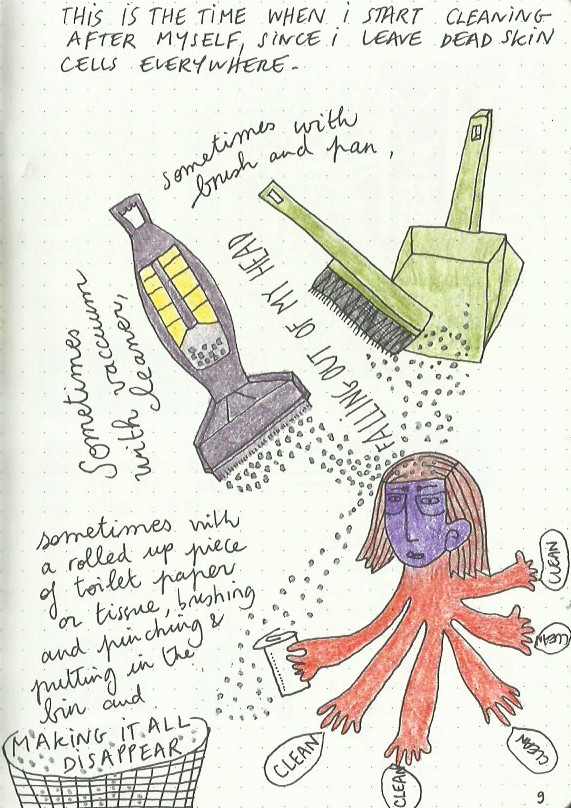 THIS IS THE TIME WHEN i START CLEANING
AFTER MYSELF, SINCE i LEAVE DEAD SKIN
CELLS EVERYWHERE.
sometimes with
brush and pan,
Sometimes
with vaccuum
cleaner,
FALLING OUT OF MY HEAD
sometimes with
a rolled up piece
of toilet paper
or tissue, brushing
and pinching &
putting in the
bin and
MAKING IT ALL
DISAPPEAR
CLEAN
CLEAN
CLEAN
CLEAN
CLEAN
9